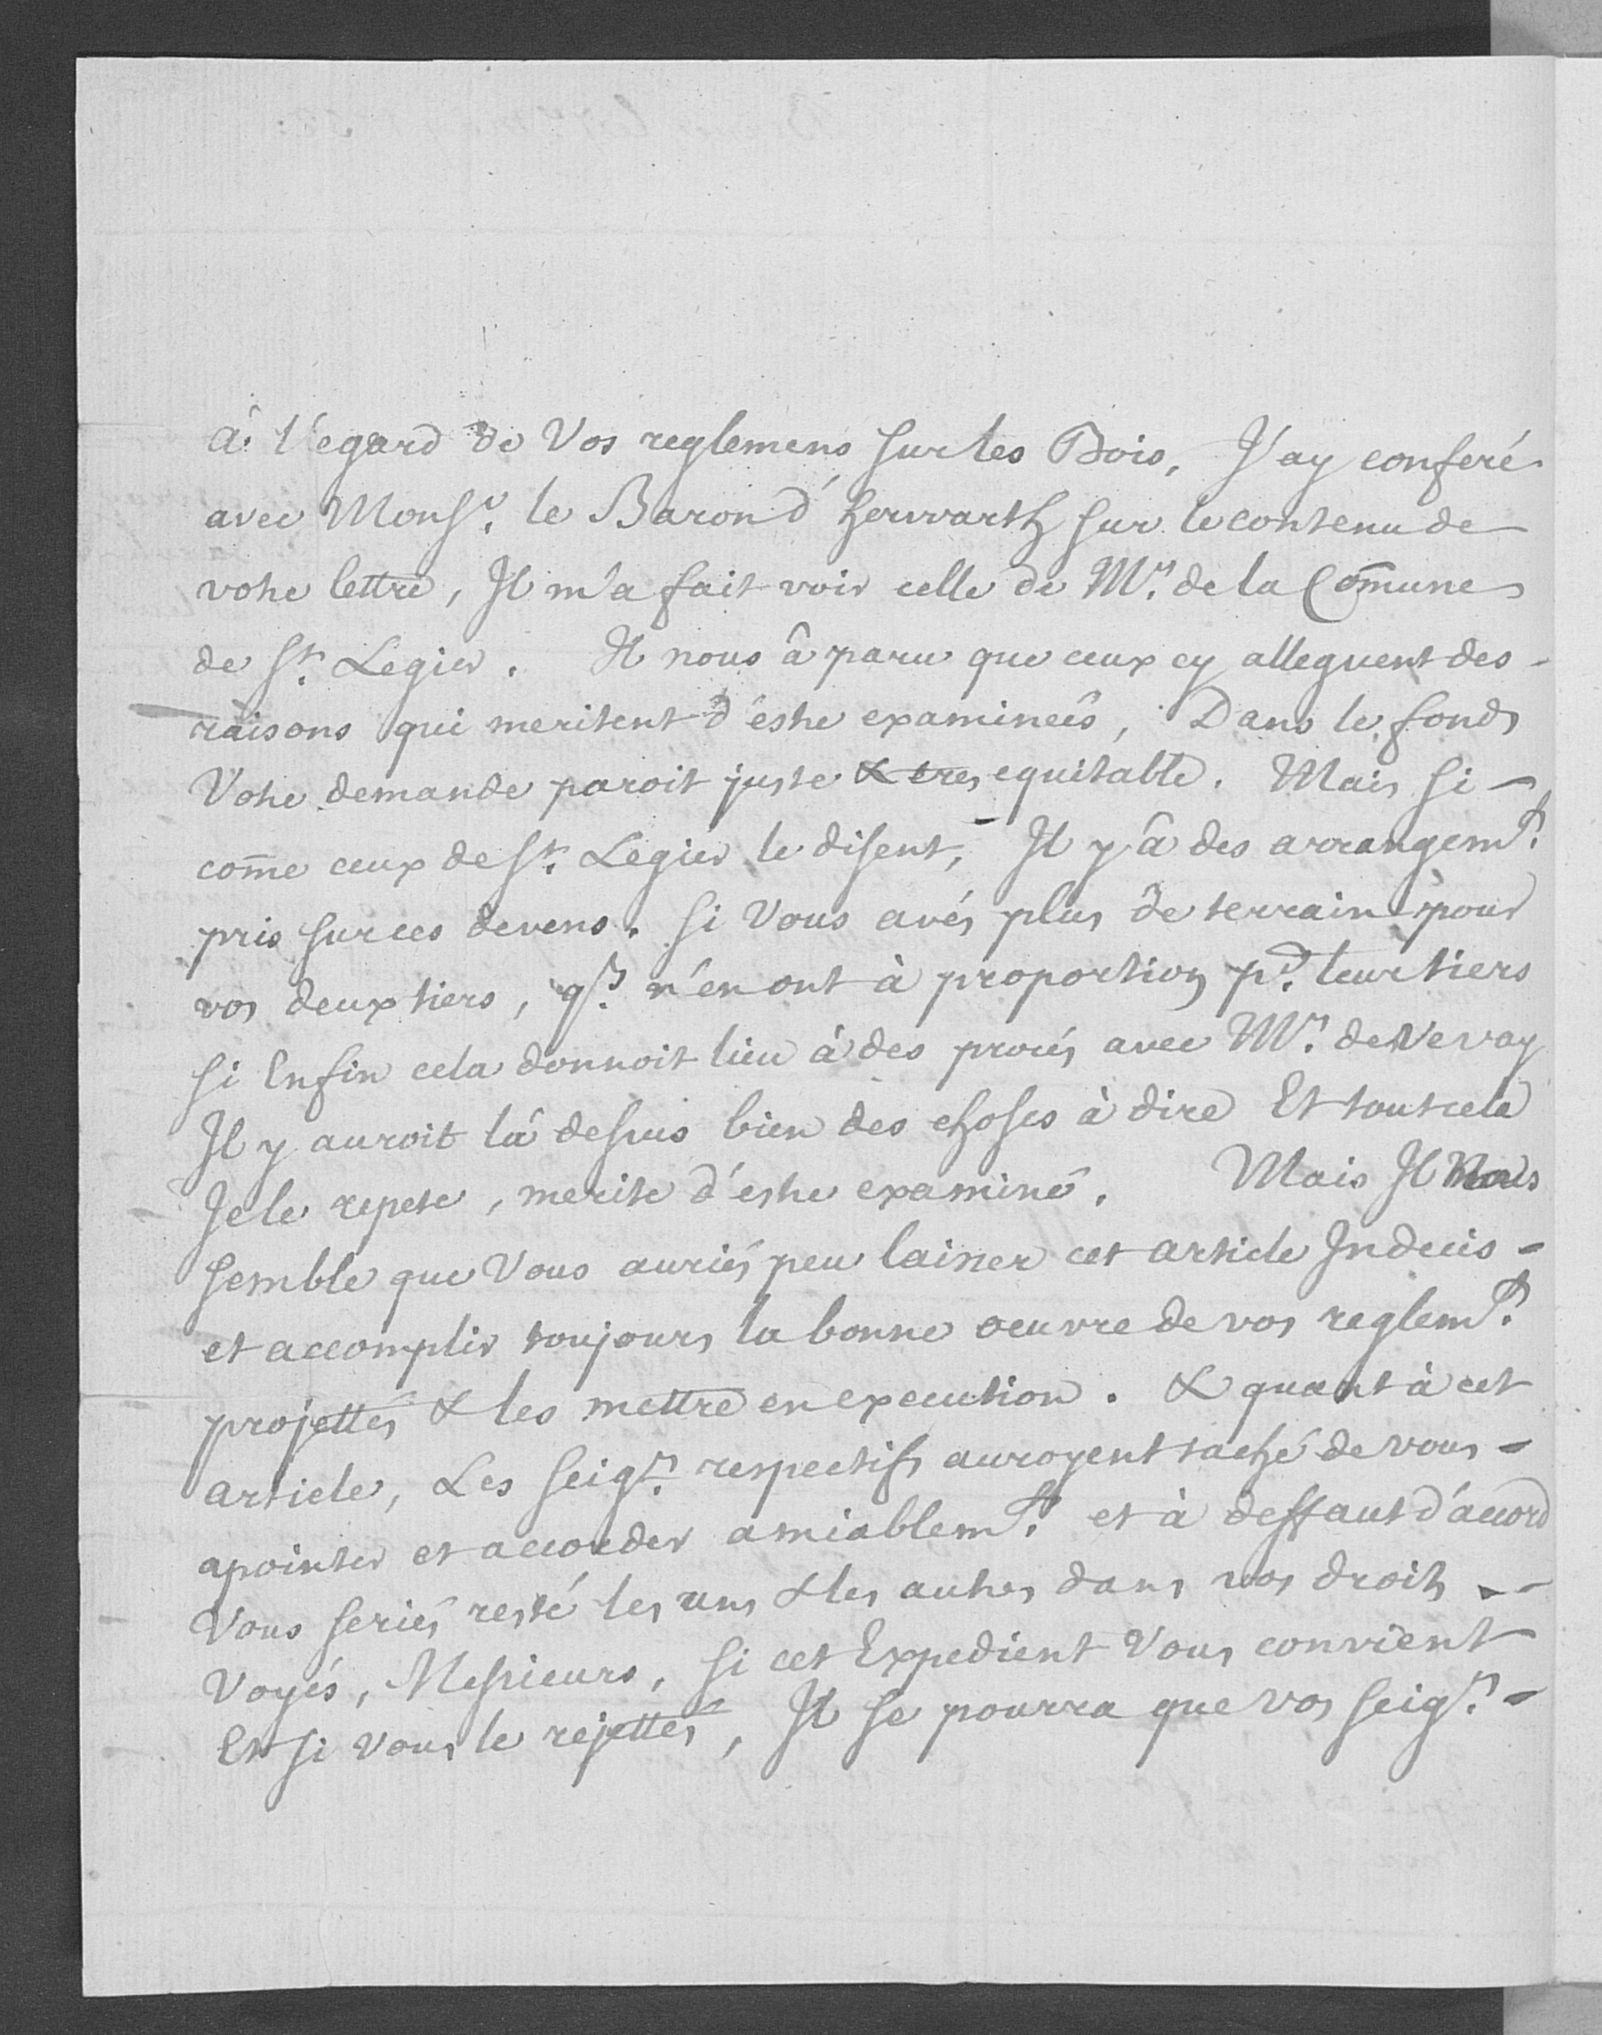 à l'egard de Vos reglemens sur les Bois, J'ay conferé
avec Mons.r le Baron d'herwarth sur le contenu de
votre lettre, Il m'a fait voir celle de M.rs de la Com̄une
de S.t Legier. Il nous â paru que ceux cy alleguent des -
raisons qui meritent d'estre examineés, Dans le fonds
Votre demande paroit juste & tres equitable. Mais si -
com̄e ceux de S.t Legier le disent, Il y â des arrangem.ts
pris sur ces devens. si Vous avés plus de terrain pour
vos deux tiers, q.ls n'en ont à proportion p.r leur tiers
si Enfin cela donnoit lieu à des procés avec M.rs de Vevay
Il y auroit là dessus bien des choses à dire Et tout cela
Je le repete, merite d'estre examiné. Mais Il Nous
semble que Vous auriés peu laisser cet article Indecis -
et accomplir toujours la bonne oeuvre de vos reglem.ts
projettés & les mettre en execution. & quant à cet
article, Les seig.rs respectifs auroyent taché de vous -
apointer et accorder amiablem.t et à deffaut d'accord
Vous seriés resté les uns & les autres dans vos droits -
Voyés, Messieurs, si cet Expedient Vous convient
Et si vous le rejettés, Il se pourra que vos seig.rs -